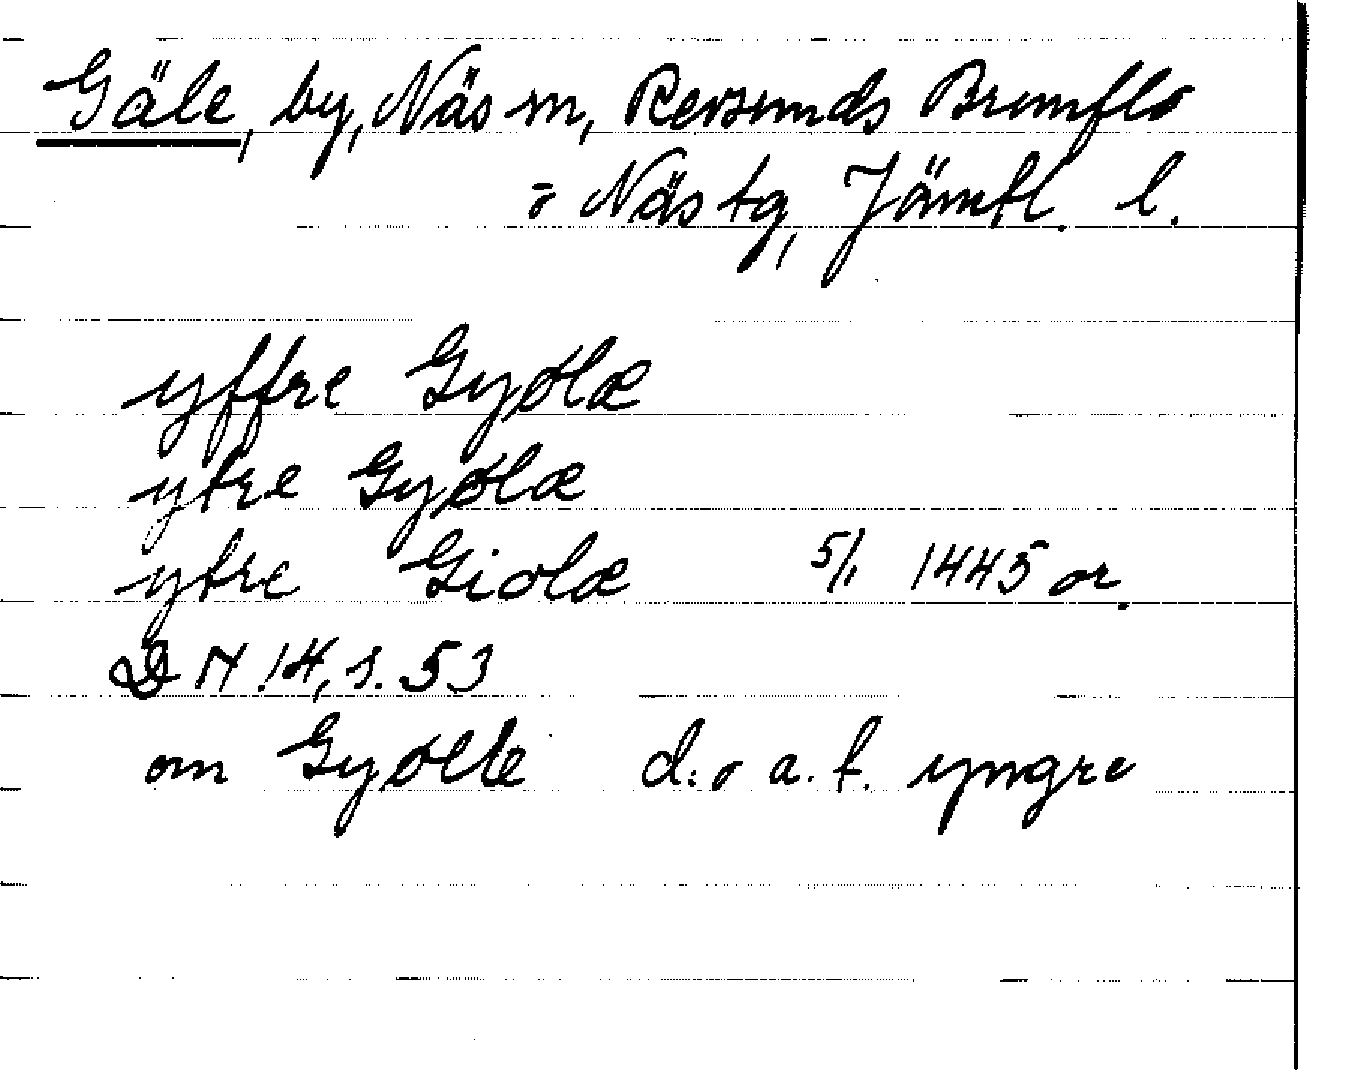 Gäle, by, Näs sn, Revsunds Brunflo
o Näs tg, Jämtl. l.
yffre Gyølæ
ytre Gyølæ
ytre Giolæ 5/1 1445 or.
DN 14, s. 53
om Gyølle d:o a. t. yngre